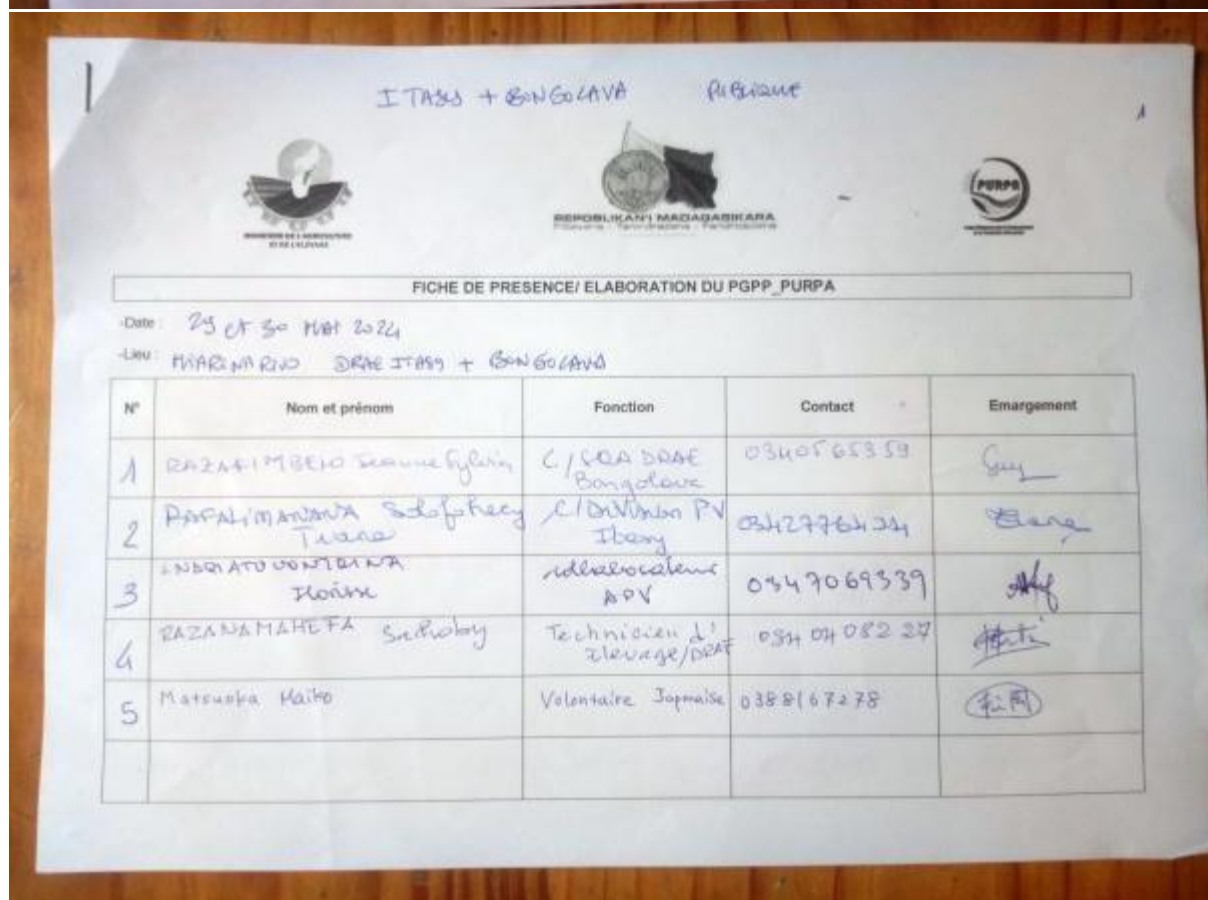 ITASY + BONGOLAVA PUBLIQUE
1
MINISTERE DE L'AGRICULTURE
ET DE L'ELEVAGE
REPOBLIKAN'I MADAGASIKARA
Fitiavana - Tanindrazana - Fandrosoana
PURPA
FICHE DE PRESENCE/ ELABORATION DU PGPP_PURPA
-Date : 29 et 30 MAI 2024
-Lieu : MIARINARIVO DRAE ITASY + BONGOLAVA
N° Nom et prénom Fonction Contact Emargement
1 RAZAFIMBELO Jeanne Sylvia C/SRA DRAE Bongolava 0340565359
2 Tiana C/Division PV Itasy
3 APV 0347069339
4 RAZANAMAHEFA Technicien d'Elevage/DRAE 034 04 082 27
5 Matsuoka Maiko Volontaire Japonaise 0388167278 松岡